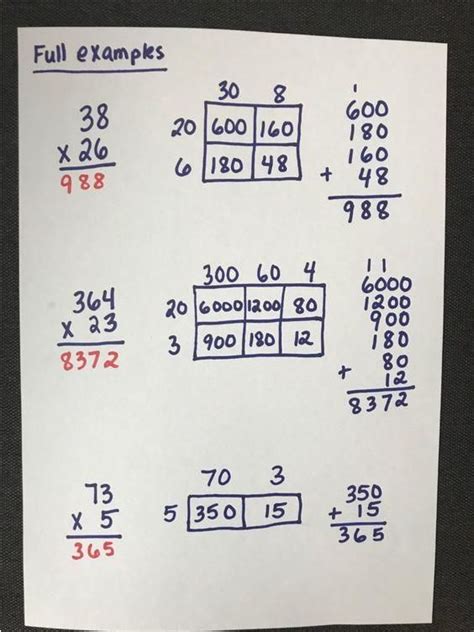 Full examples
38
x 26
988
30 8
20 600 160
6 180 48
1
600
180
160
+ 48
988
364
x 23
8372
300 60 4
20 6000 1200 80
3 900 180 12
11
6000
1200
900
180
80
+ 12
8372
73
x 5
365
70 3
5 350 15
350
+ 15
365